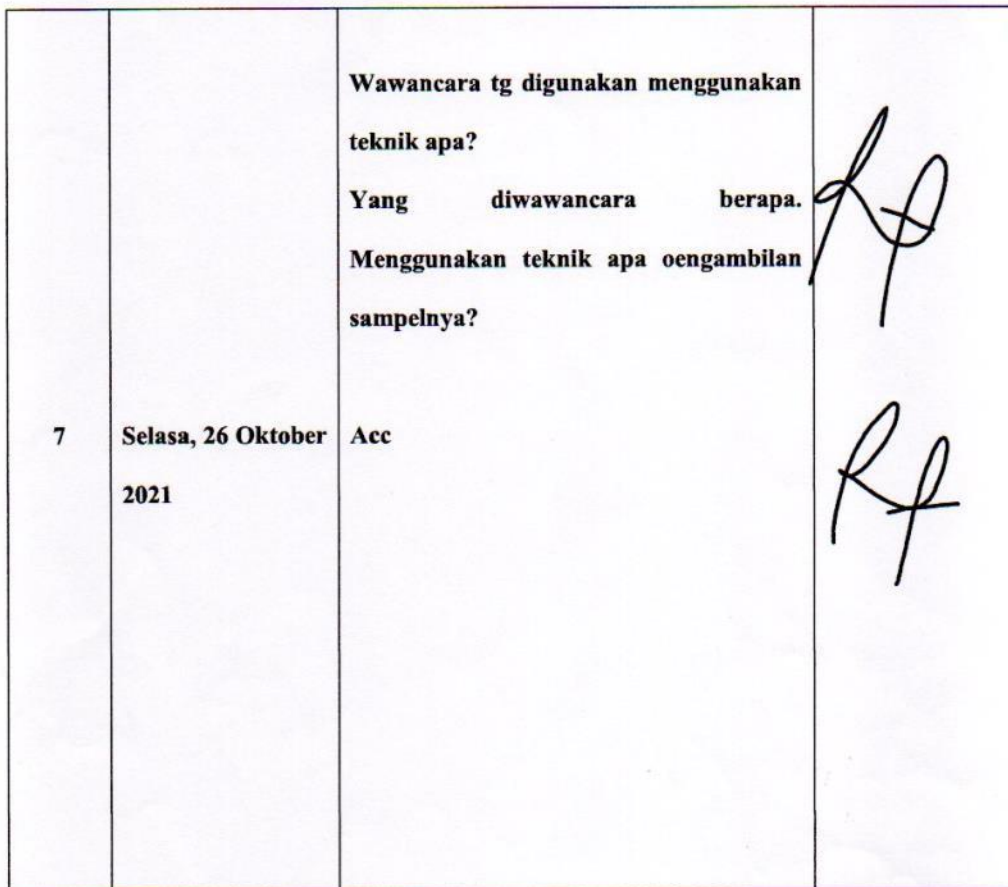 Wawancara tg digunakan menggunakan
teknik apa?
Yang diwawancara berapa.
Menggunakan teknik apa oengambilan
sampelnya?
7 Selasa, 26 Oktober Acc
2021